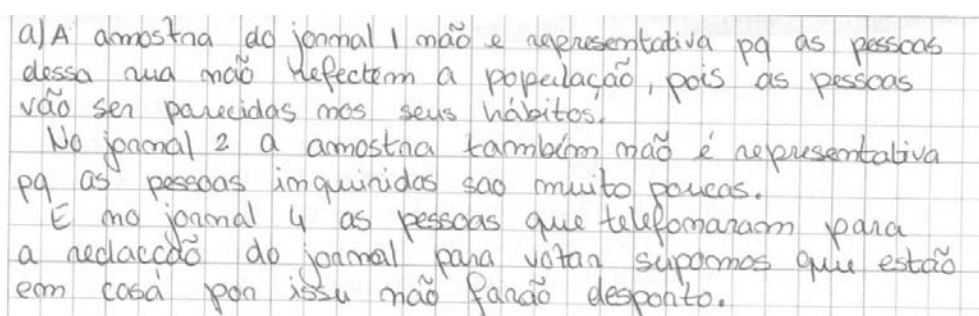 a) A amostra do jornal 1 não e representativa pq as pessoas
dessa rua não refectem a população, pois as pessoas
vão ser parecidas nos seus hábitos.
No jornal 2 a amostra também não é representativa
pq as pessoas inquiridas sao muito poucas.
E no jornal 4 as pessoas que telefonaram para
a redacção do jornal para votar supomos que estão
em casa por issu não farão desporto.